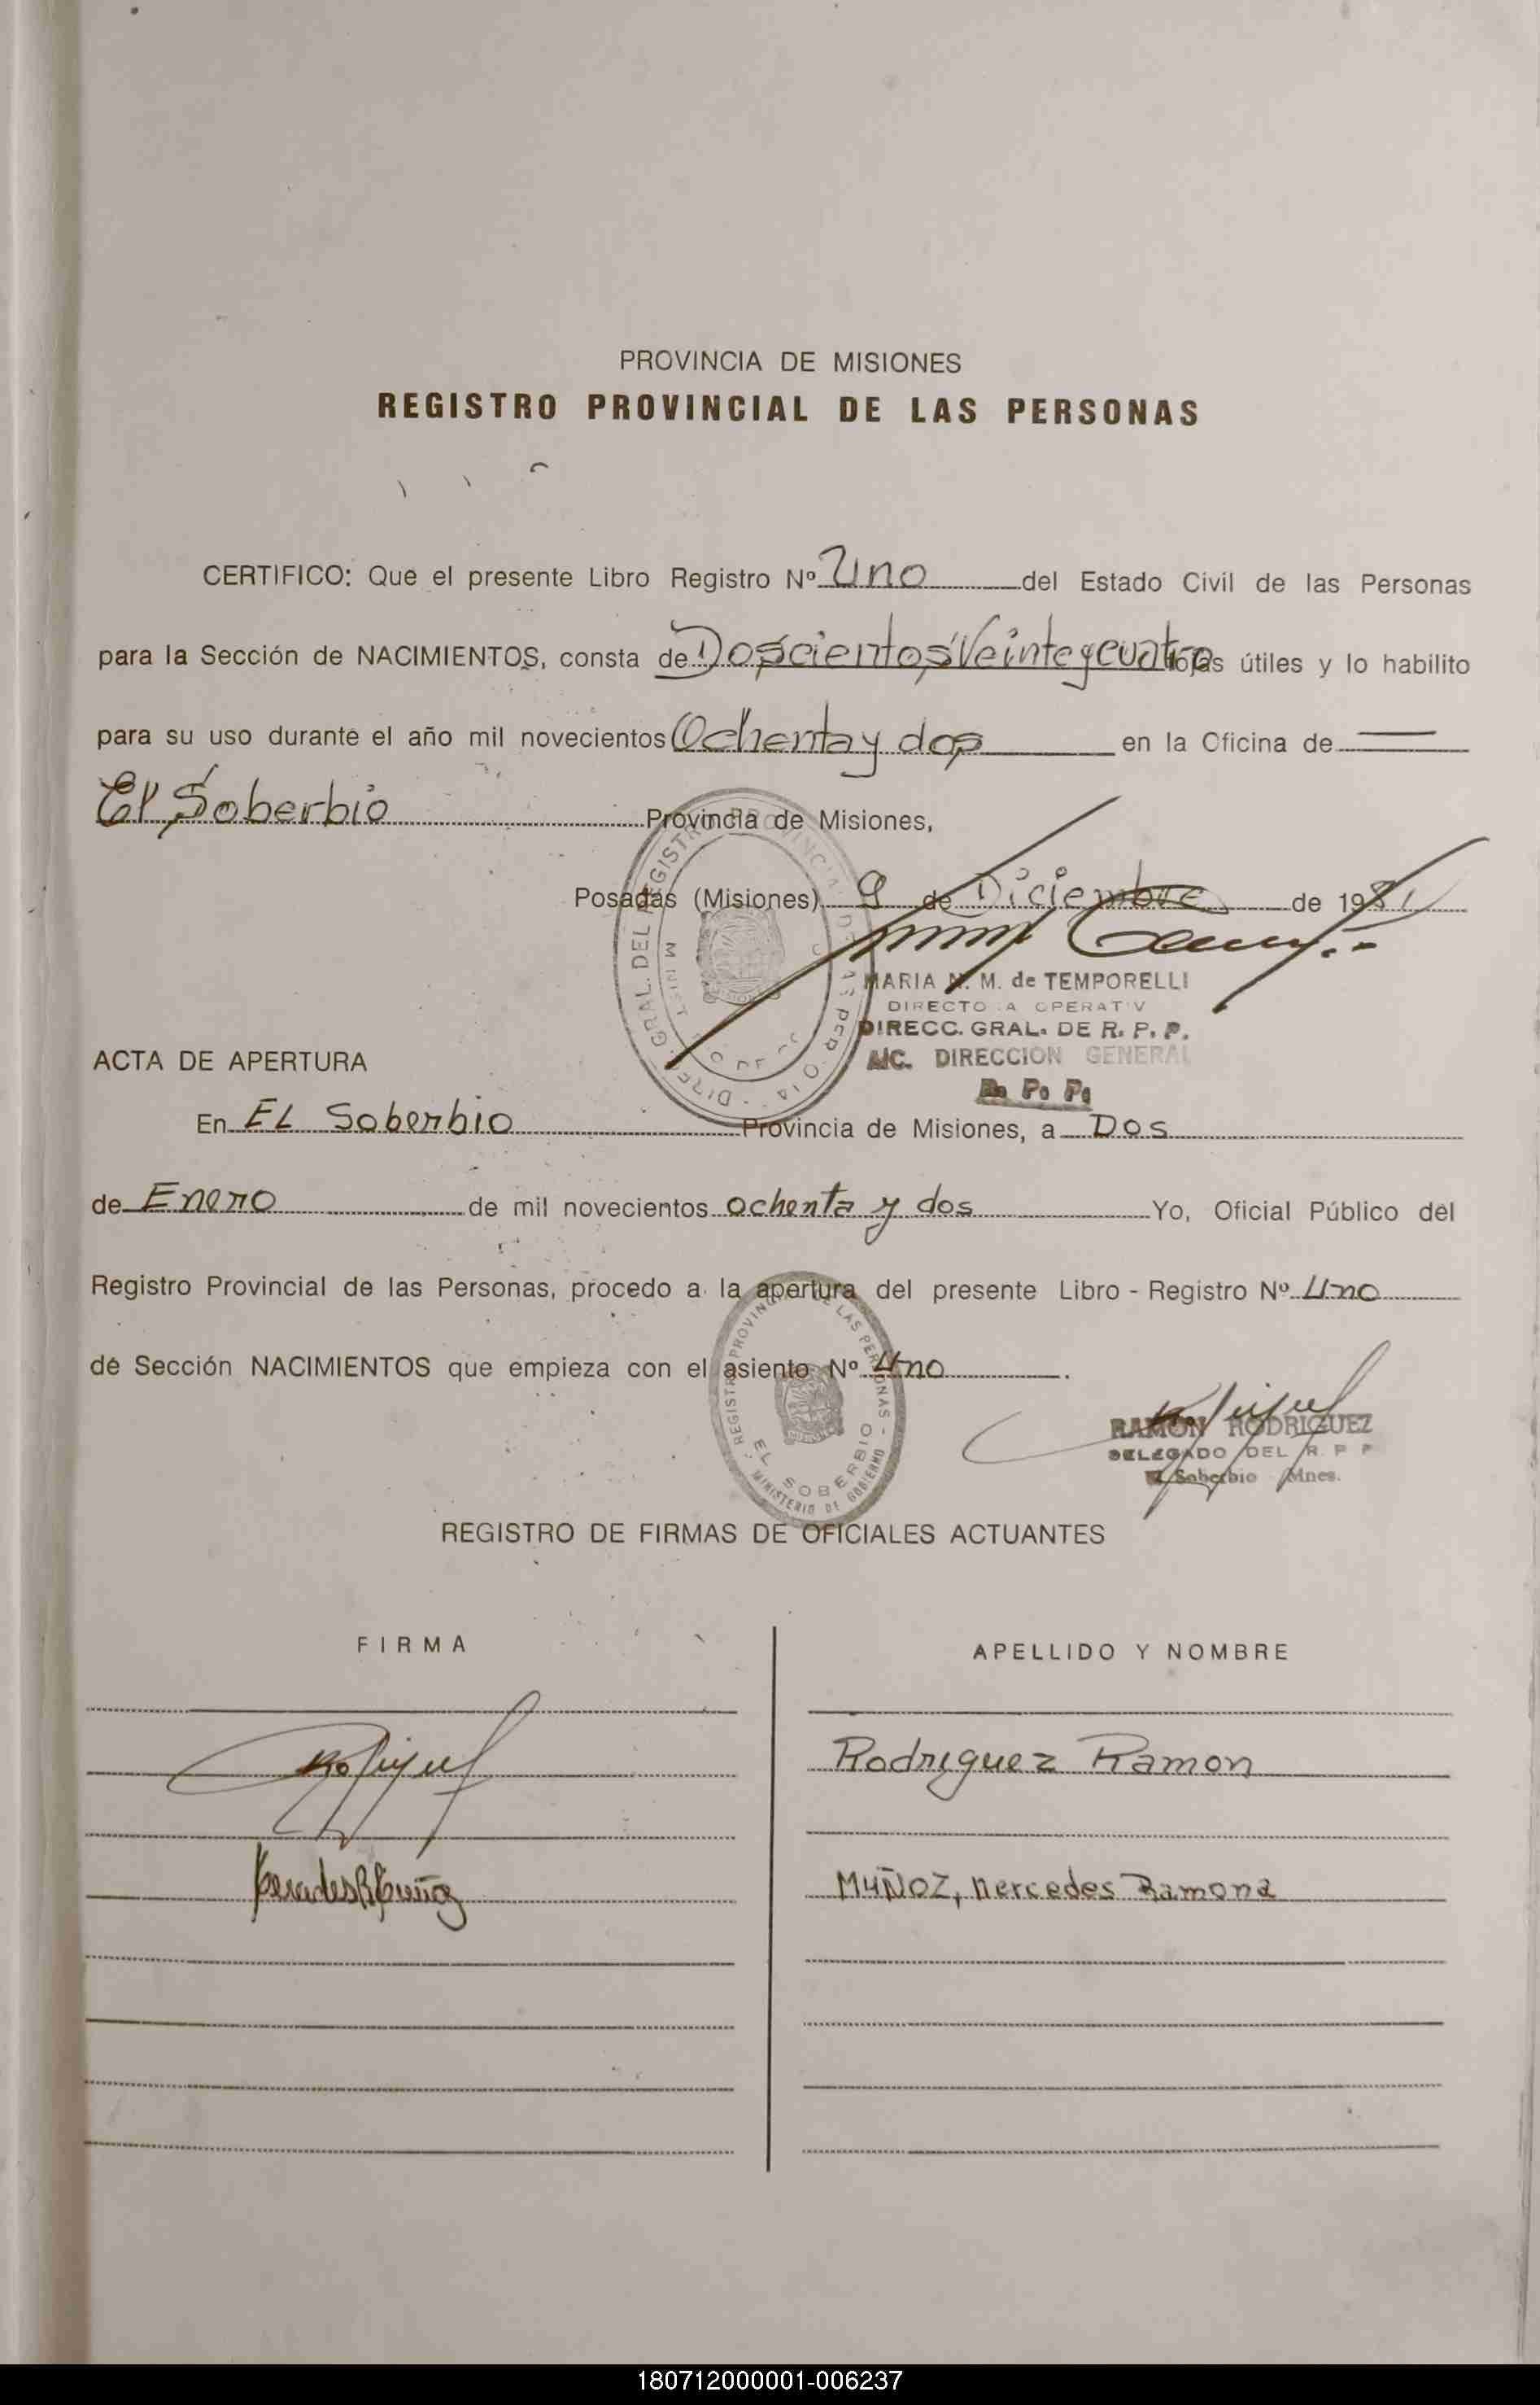 PROVINCIA DE MISIONES
REGISTRO PROVINCIAL DE LAS PERSONAS
CERTIFICO: Que el presente Libro Registro Nº Uno del Estado Civil de las Personas
para la Sección de NACIMIENTOS, consta de Doscientos Veinte y cuatro fojas útiles y lo habilito
para su uso durante el año mil novecientos Ochenta y dos en la Oficina de
El Soberbio Provincia de Misiones,
Posadas (Misiones) 9 de Diciembre de 1981
MARIA N. M. de TEMPORELLI
DIRECTO A OPERATIV
DIRECC. GRAL. DE R. P. P.
A/C. DIRECCION GENERAL
R. P. P.
ACTA DE APERTURA
En EL Soberbio Provincia de Misiones, a Dos
de Enero de mil novecientos ochenta y dos Yo, Oficial Público del
Registro Provincial de las Personas, procedo a la apertura del presente Libro - Registro Nº Uno
de Sección NACIMIENTOS que empieza con el asiento Nº Uno.
REGISTRO PROVINCIAL DE LAS PERSONAS - MINISTERIO DE GOBIERNO -
EL SOBERBIO
RAMON RODRIGUEZ
DELEGADO DEL R P P
El Soberbio Mnes.
REGISTRO DE FIRMAS DE OFICIALES ACTUANTES
FIRMA
APELLIDO Y NOMBRE
Rodriguez Ramon
MUÑOZ, Mercedes Ramona
180712000001-006237